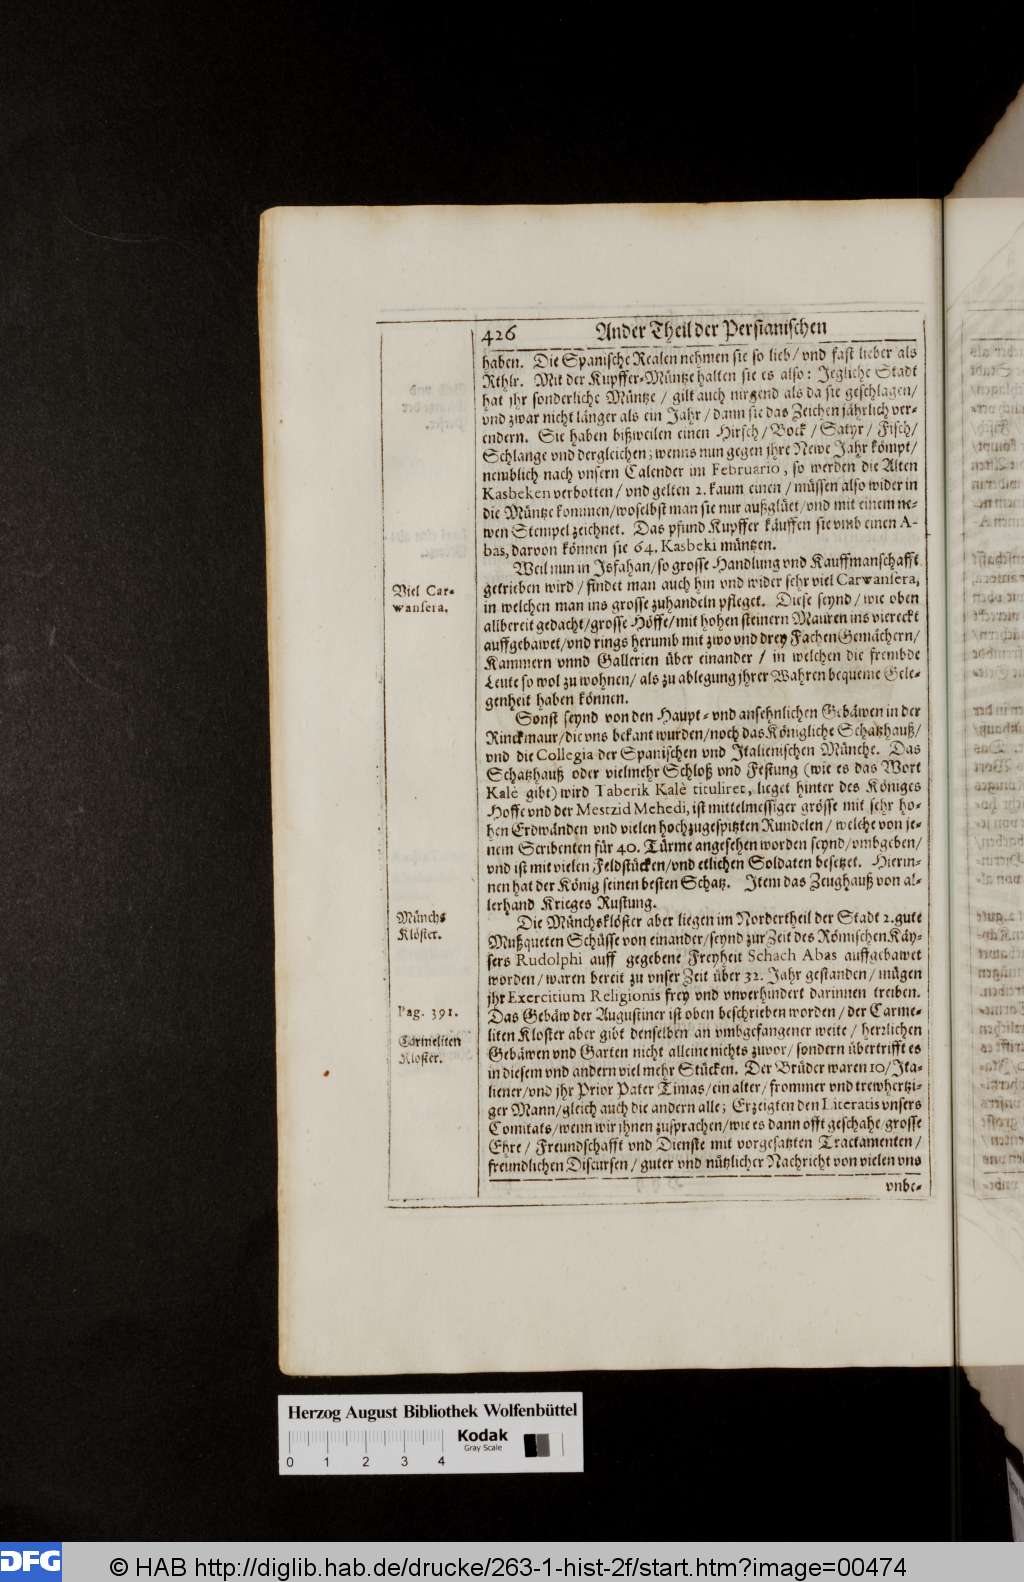 426 Ander Theil der Persianischen
haben. Die Spanische Realen nehmen sie so lieb/ vnd fast lieber als
Rthlr. Mit der Kupffer-Müntze halten sie es also: Jegliche Stadt
hat jhr sonderliche Müntze / gilt auch nirgend als da sie geschlagen/
vnd zwar nicht länger als ein Jahr / dann sie das Zeichen jährlich ver-
endern. Sie haben bißweilen einen Hirsch/ Bock / Satyr / Fisch/
Schlange vnd dergleichen; wenns nun gegen jhre Newe Jahr kömpt/
nemblich nach vnsern Calender im Februario, so werden die Alten
Kasbeken verbotten/ vnd gelten 2. kaum einen / müssen also wider in
die Müntze kommen/ woselbst man sie nur außglüet/ vnd mit einem ne-
wen Stempel zeichnet. Das pfund Kupffer käuffen sie vmb einen A-
bas, darvon können sie 64. Kasbeki müntzen.
Weil nun in Isfahan/ so grosse Handlung vnd Kauffmanschafft
getrieben wird / findet man auch hin vnd wider sehr viel Carwansera,
Viel Car-
wansera.
in welchen man ins grosse zuhandeln pfleget. Diese seynd/ wie oben
allbereit gedacht/ grosse Höffe/ mit hohen steinern Mauren ins viereckt
auffgebawet/ vnd rings herumb mit zwo vnd drey Fachen Gemächern/
Kammern vnnd Gallerien über einander / in welchen die frembde
Leute so wol zu wohnen/ als zu ablegung jhrer Wahren bequeme Gele-
genheit haben können.
Sonst seynd von den Haupt- vnd ansehnlichen Gebäwen in der
Rinckmaur/ die vns bekant wurden/ noch das Königliche Schatzhauß/
vnd die Collegia der Spanischen vnd Italienischen Münche. Das
Schatzhauß oder vielmehr Schloß vnd Festung (wie es das Wort
Kalè gibt) wird Taberik Kalè tituliret, lieget hinter des Königes
Hoffe vnd der Mestzid Mehedi, ist mittelmessiger grösse mit sehr ho-
hen Erdwänden vnd vielen hochzugespitzten Rundelen/ welche von je-
nem Scribenten für 40. Türme angesehen worden seynd/ vmbgeben/
vnd ist mit vielen Feldstücken/ vnd etlichen Soldaten besetzet. Hierin-
nen hat der König seinen besten Schatz. Item das Zeughauß von al-
lerhand Krieges Rustung.
Münchs
Klöster.
Die Münchsklöster aber liegen im Nordertheil der Stadt 2. gute
Mußqueten Schüsse von einander/ seynd zur Zeit des Römischen Käy-
sers Rudolphi auff gegebene Freyheit Schach Abas auffgebawet
worden/ waren bereit zu vnser Zeit über 32. Jahr gestanden/ mügen
jhr Exercitium Religionis frey vnd vnverhindert darinnen treiben.
Pag. 391.
Das Gebäw der Augustiner ist oben beschrieben worden/ der Carme-
Carmeliten
Kloster.
liten Kloster aber gibt denselben an vmbgefangener weite/ herrlichen
Gebäwen vnd Garten nicht alleine nichts zuvor/ sondern übertrifft es
in diesem vnd andern viel mehr Stücken. Der Brüder waren 10/ Ita-
liener/ vnd jhr Prior Pater Timas/ ein alter/ frommer vnd trewhertzi-
ger Mann/ gleich auch die andern alle; Erzeigten den Literatis vnsers
Comitats/ wenn wir jhnen zusprachen/ wie es dann offt geschahe/ grosse
Ehre / Freundschafft vnd Dienste mit vorgesatzten Tractamenten/
freundlichen Discursen/ guter vnd nützlicher Nachricht von vielen vns
vnbe-
Herzog August Bibliothek Wolfenbüttel
Kodak
Gray Scale
0 1 2 3 4
DFG © HAB http://diglib.hab.de/drucke/263-1-hist-2f/start.htm?image=00474